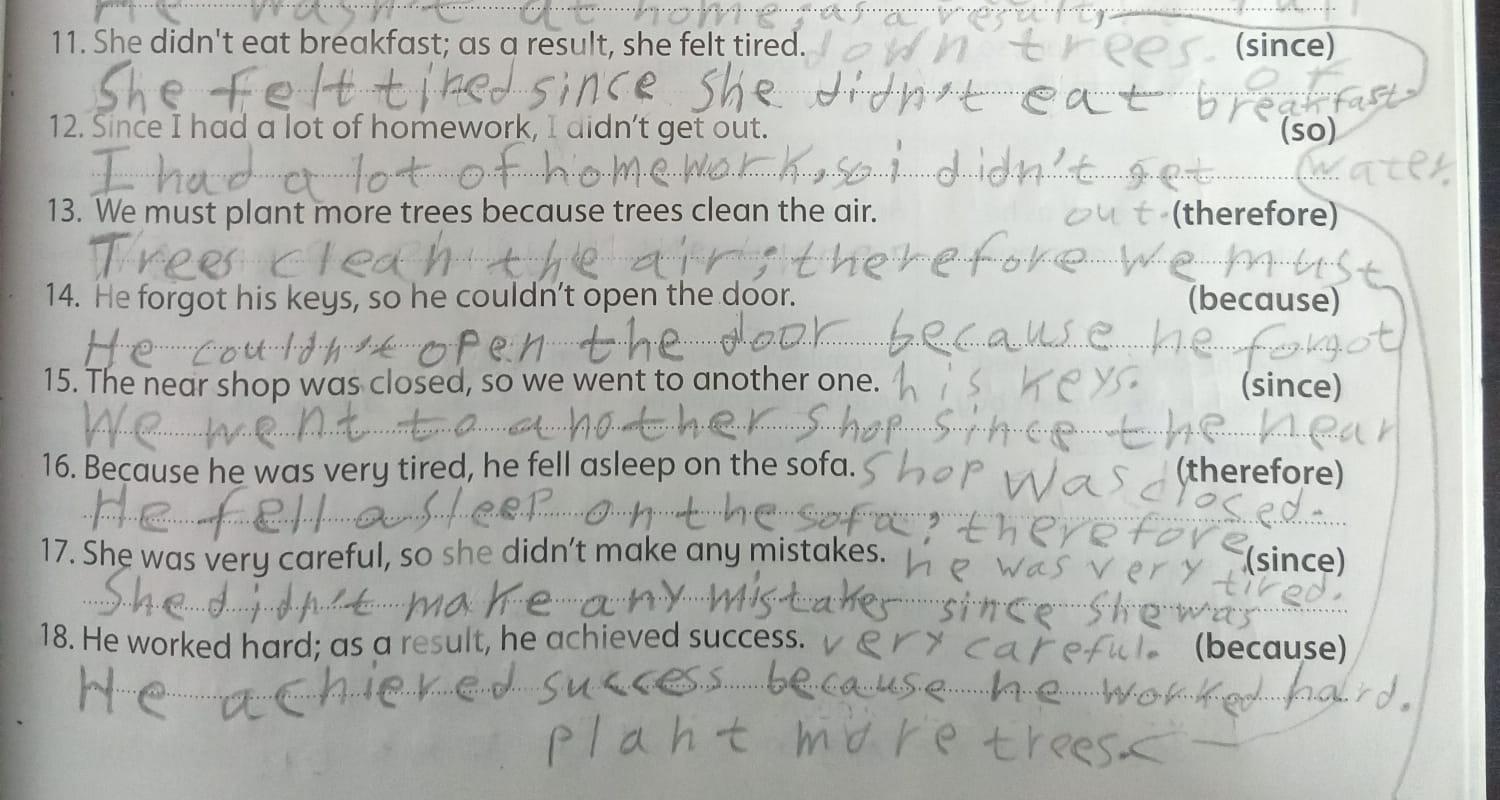 He wasn't at home; as a result,
11. She didn't eat breakfast; as a result, she felt tired. down trees. (since)
of
She felt tired since she didn't eat breakfast
12. Since I had a lot of homework, I didn't get out. (so)
I had a lot of homework, so i didn't get water.
13. We must plant more trees because trees clean the air. out. (therefore)
Trees clean the air; therefore we must
14. He forgot his keys, so he couldn't open the door. (because)
He couldn't open the door because he forgot
15. The near shop was closed, so we went to another one. his keys. (since)
We went to another shop since the near
16. Because he was very tired, he fell asleep on the sofa. shop was closed. (therefore)
He fell asleep on the sofa; therefore
17. She was very careful, so she didn't make any mistakes. he was very tired. (since)
She didn't make any mistakes since she was
18. He worked hard; as a result, he achieved success. very careful. (because)
He achieved success because he worked hard.
plant more trees.